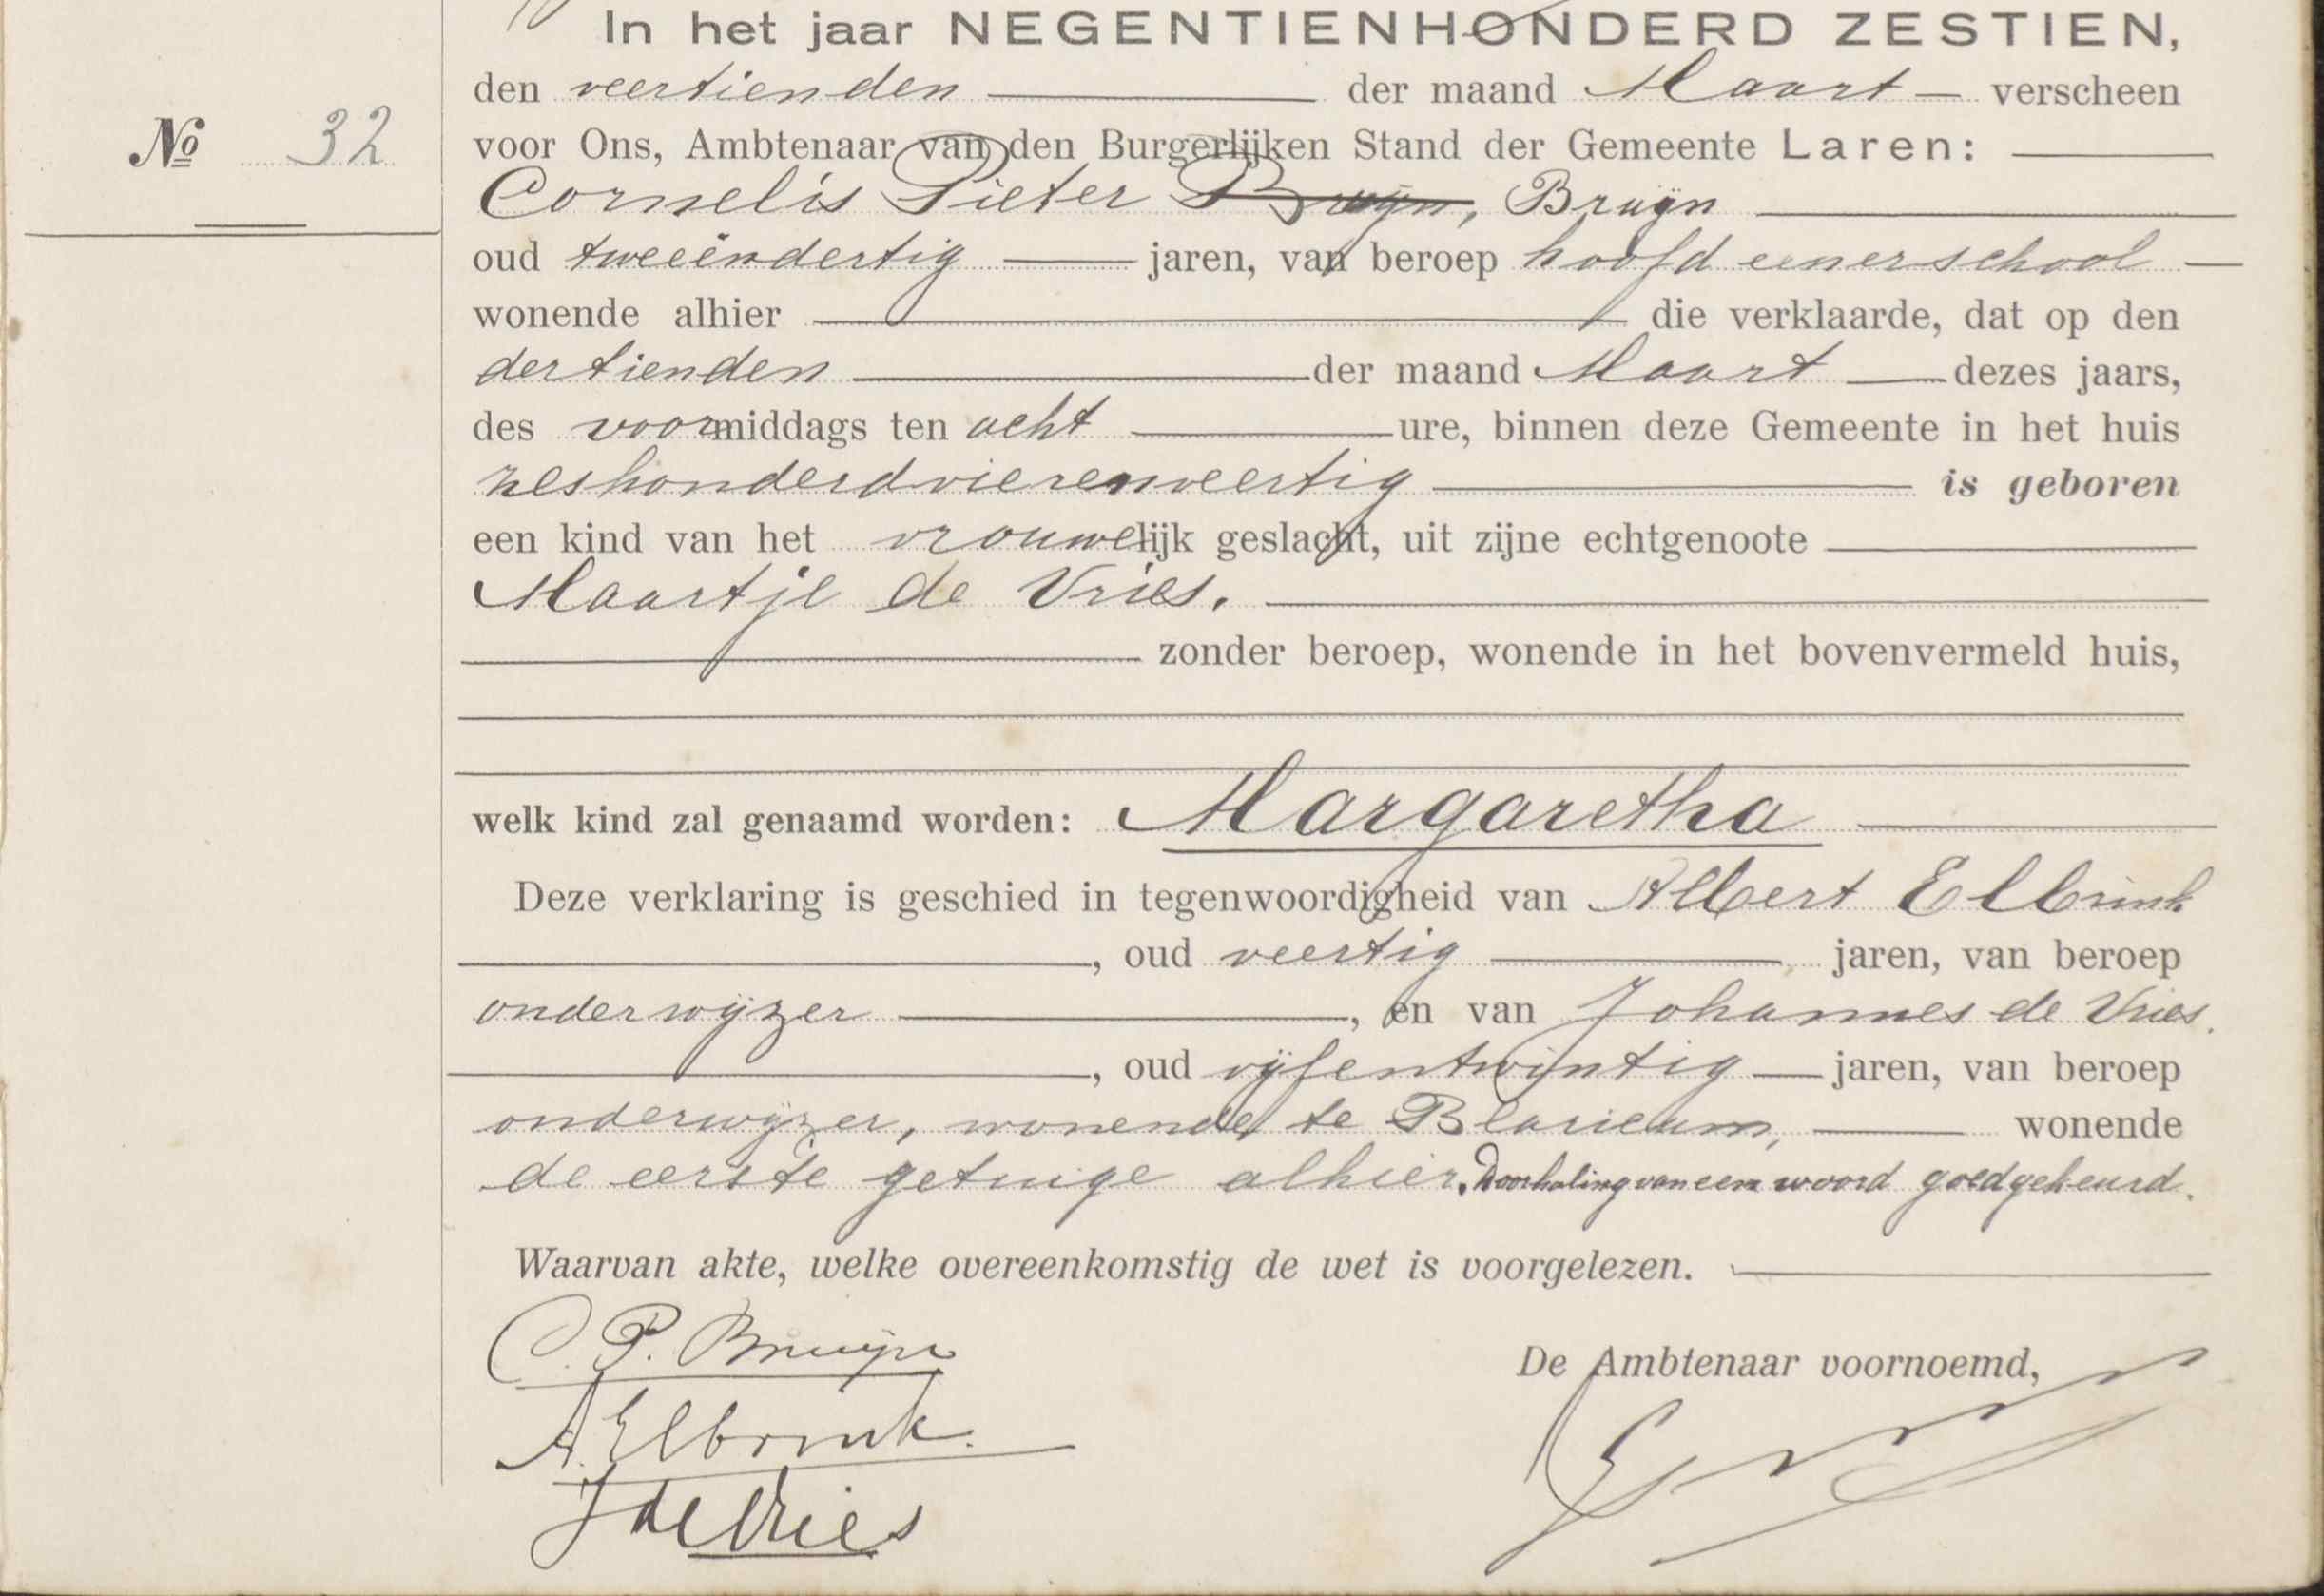 In het jaar NEGENTIENHONDERD ZESTIEN,
den veertienden der maand Maart verscheen
No 32
voor Ons, Ambtenaar van den Burgerlijken Stand der Gemeente Laren:
Cornelis Pieter Bruijn, Bruijn
oud tweeëndertig jaren, van beroep hoofd eener school
wonende alhier die verklaarde, dat op den
dertienden der maand Maart dezes jaars,
des voormiddags ten acht ure, binnen deze Gemeente in het huis
zeshonderdvierenveertig is geboren
een kind van het vrouwelijk geslacht, uit zijne echtgenoote
Maartje de Vries.
zonder beroep, wonende in het bovenvermeld huis,
welk kind zal genaamd worden: Margaretha
Deze verklaring is geschied in tegenwoordigheid van Albert Elbrink
, oud veertig jaren, van beroep
onderwijzer, en van Johannes de Vries.
, oud vijfentwintig jaren, van beroep
onderwijzer, wonende te Blaricum, wonende
de eerste getuige alhier. Doorhaling van een woord goedgekeurd.
Waarvan akte, welke overeenkomstig de wet is voorgelezen.
C. P. Bruijn
De Ambtenaar voornoemd,
A. Elbrink.
J de Vries